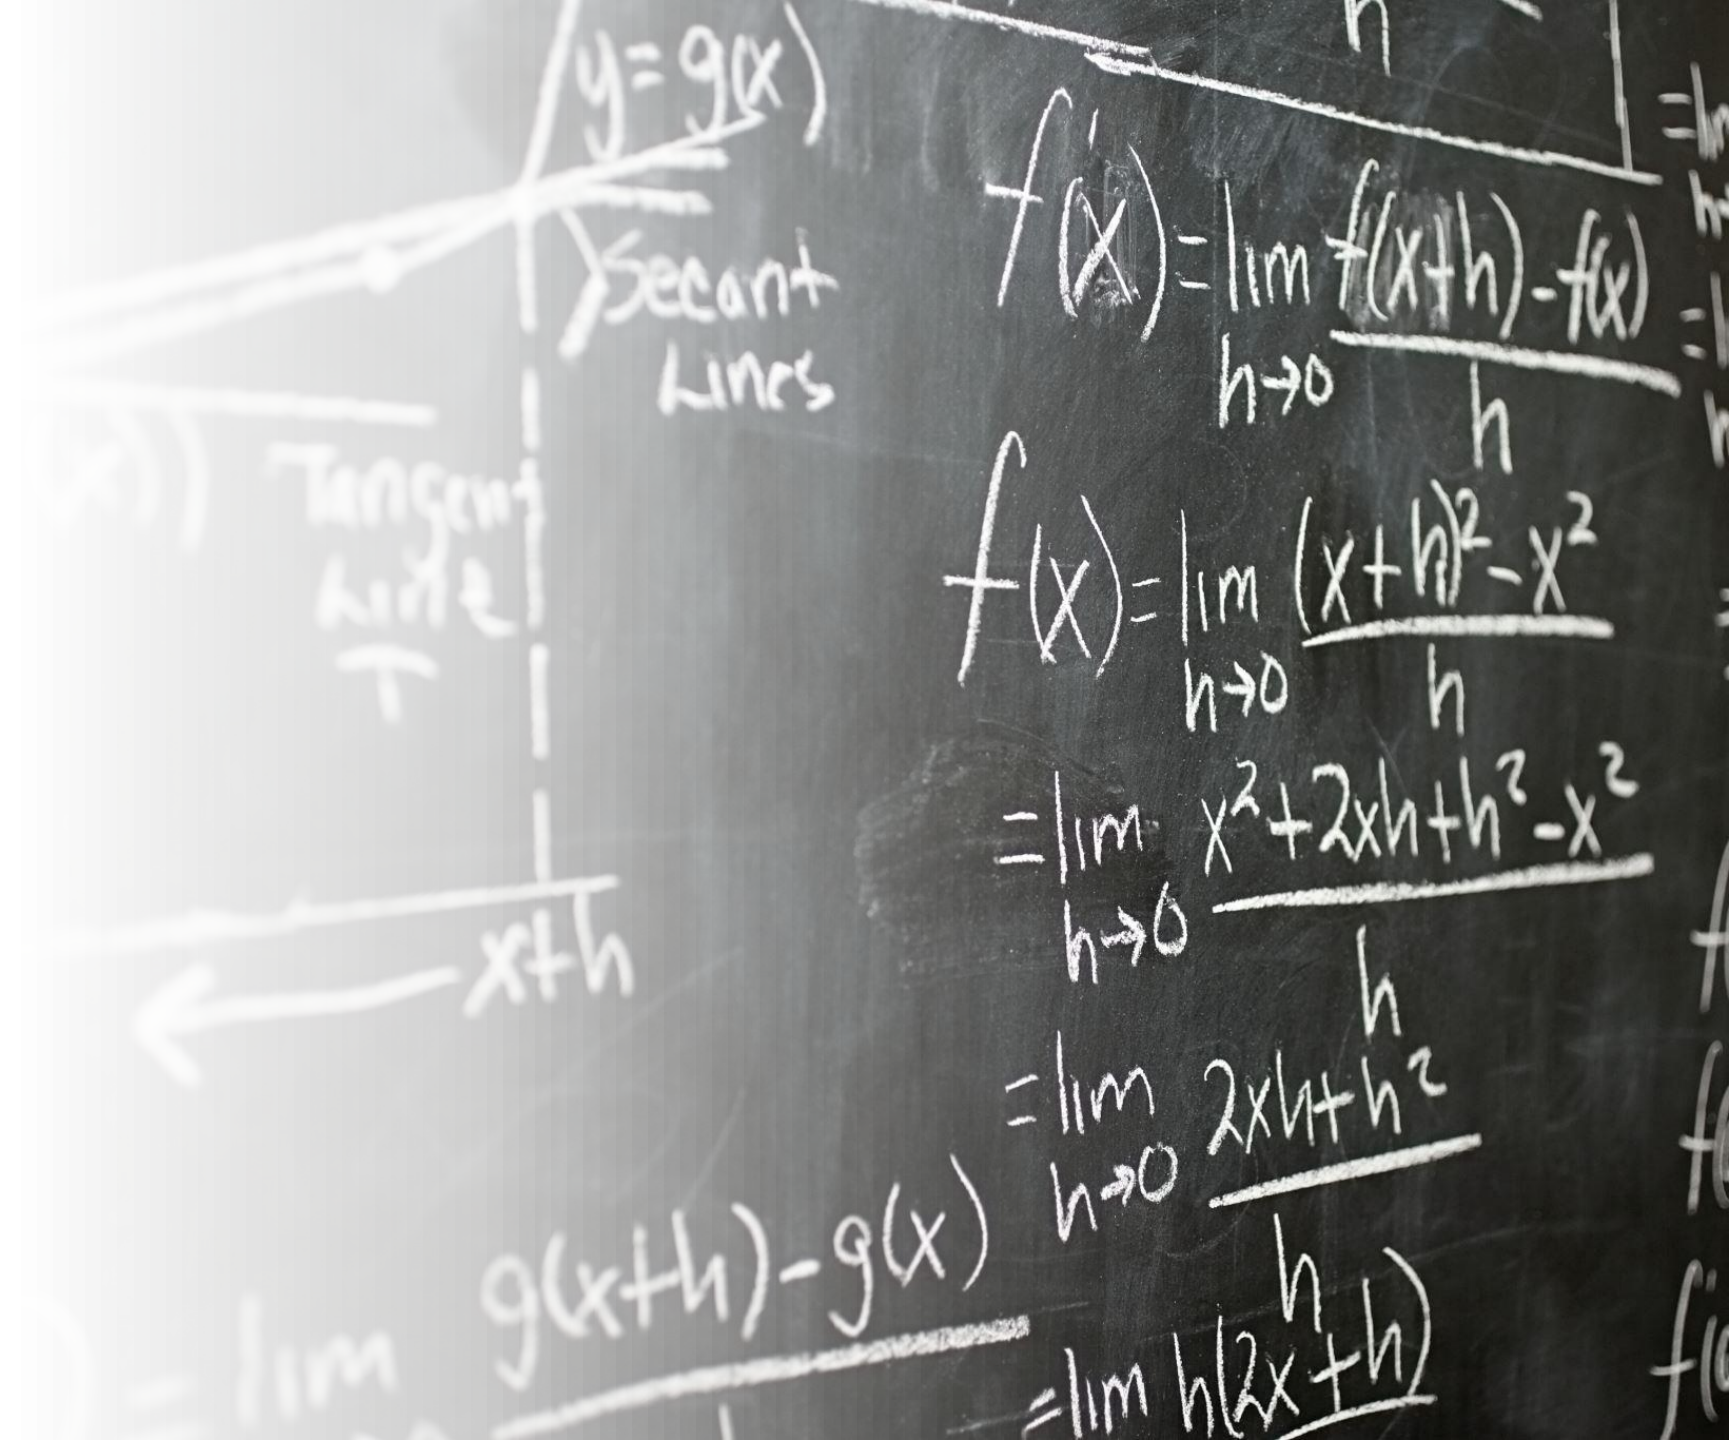 y = g(x)
Secant
Lines
Tangent
Line
T
x+h
= lim g(x+h) - g(x)
h
f'(x) = lim f(x+h) - f(x)
h→0 h
f(x) = lim (x+h)² - x²
h→0 h
= lim x² + 2xh + h² - x²
h→0 h
= lim 2xh + h²
h→0 h
= lim h(2x+h)